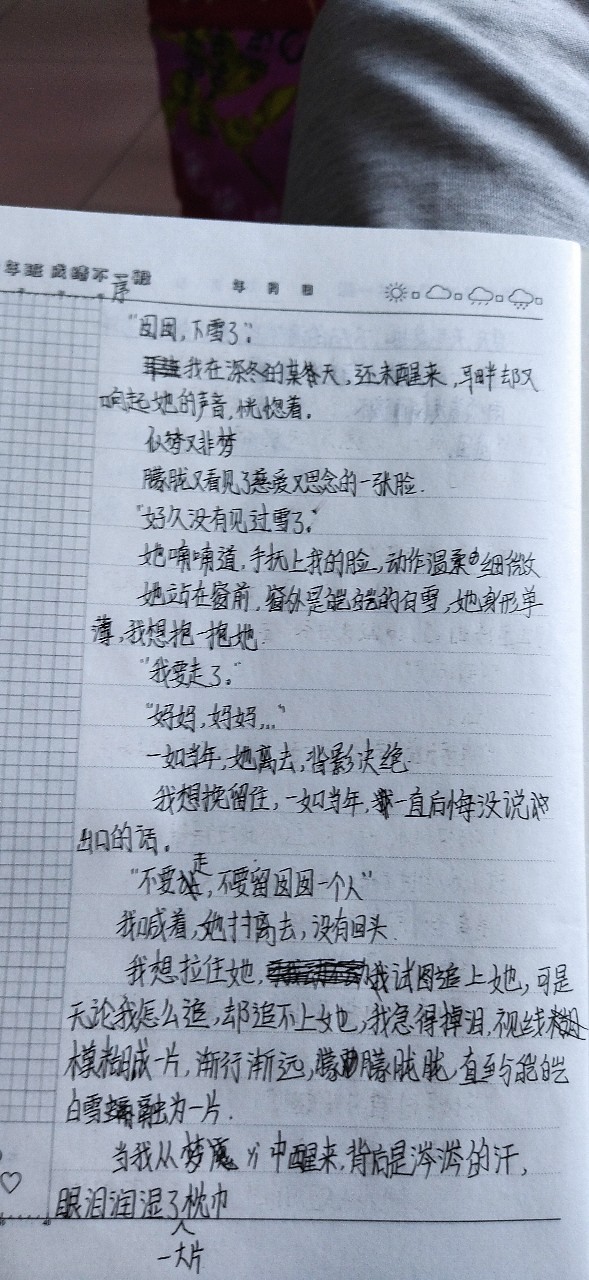 年 月 日
序
"囡囡,下雪了."
我在深冬的某天,还未醒来,耳畔却又
响起她的声音,恍惚着。
似梦又非梦
朦胧又看见了慈爱又思念的一张脸.
"好久没有见过雪了."
她喃喃道,手抚上我的脸,动作温柔细微
她站在窗前,窗外是皑皑的白雪,她身形单
薄,我想抱一抱她.
"我要走了."
"妈妈,妈妈..."
一如当年,她离去,背影决绝.
我想挽留住,一如当年,一直后悔没说
出口的话。
"不要走,不要留囡囡一个人"
我喊着,她离去,没有回头.
我想拉住她,我试图追上她,可是
无论我怎么追,却追不上她,我急得掉泪,视线
模糊成一片,渐行渐远,朦朦胧胧,直至与皑皑
白雪融为一片.
当我从梦魇中醒来,背后是涔涔的汗,
眼泪润湿了枕巾
一大片